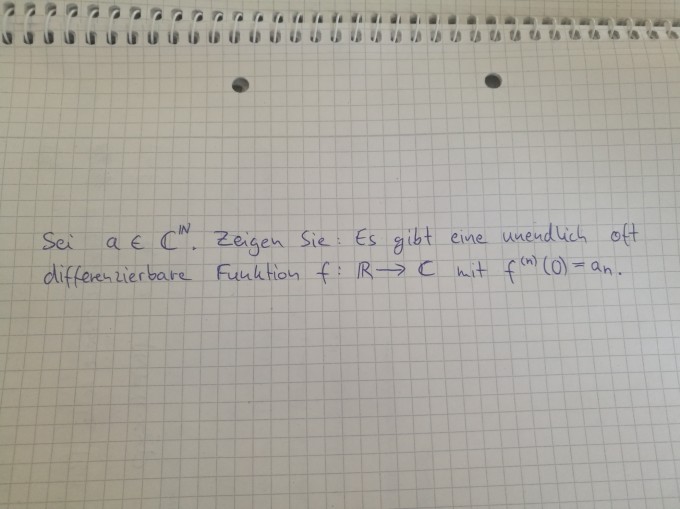 Sei a ∈ ℂ^ℕ. Zeigen Sie: Es gibt eine unendlich oft
differenzierbare Funktion f: ℝ → ℂ mit f^(n)(0) = aₙ.